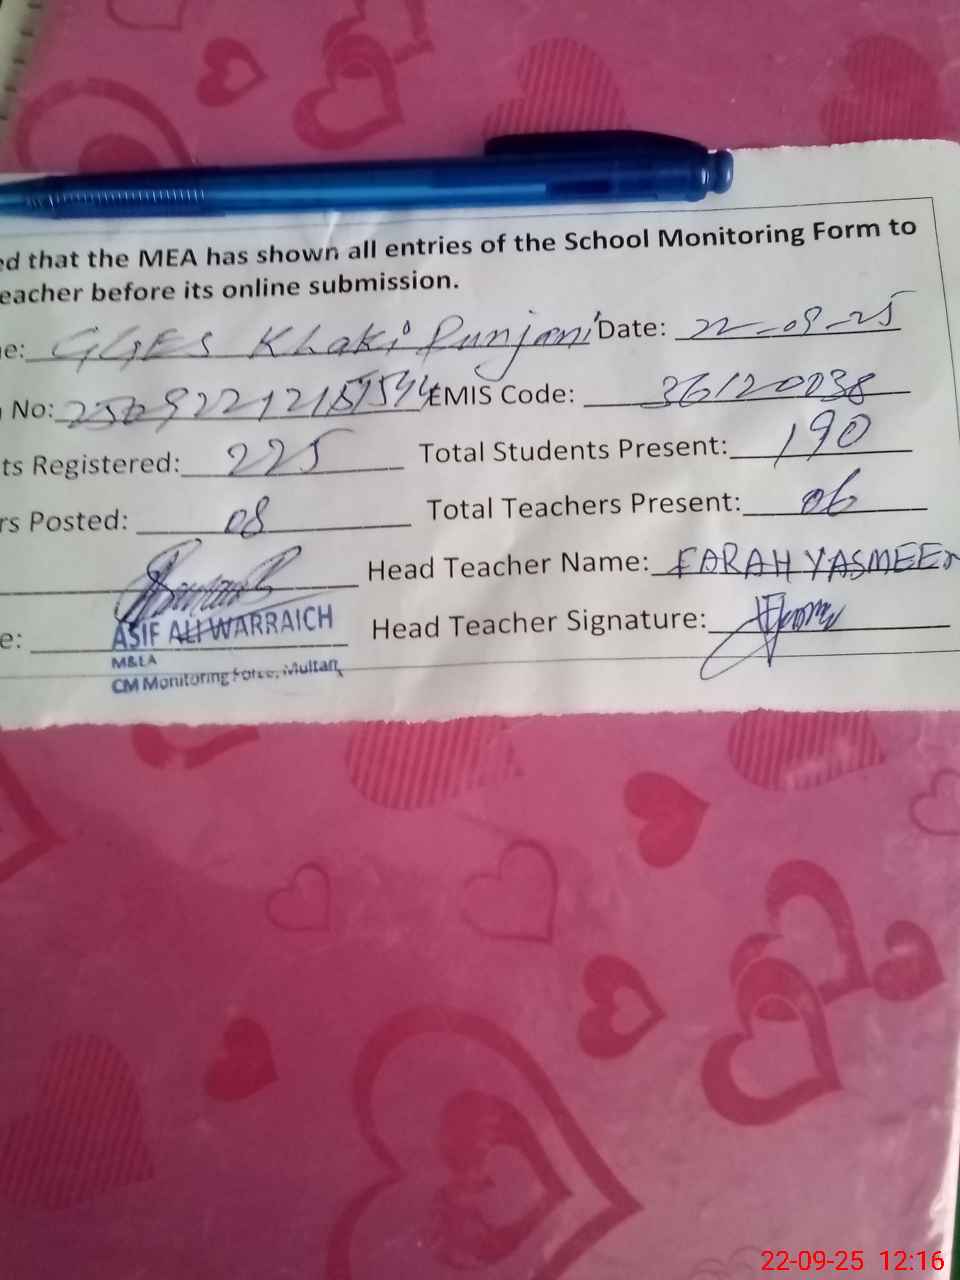 ed that the MEA has shown all entries of the School Monitoring Form to
eacher before its online submission.
e: GGES Khaki Punjani Date: 22-09-25
No: EMIS Code: 36120038
ts Registered: 225 Total Students Present: 190
rs Posted: 08 Total Teachers Present: 06
Head Teacher Name: FARAH YASMEEN
e: ASIF ALI WARRAICH Head Teacher Signature:
M&EA
CM Monitoring Force, Multan
22-09-25 12:16